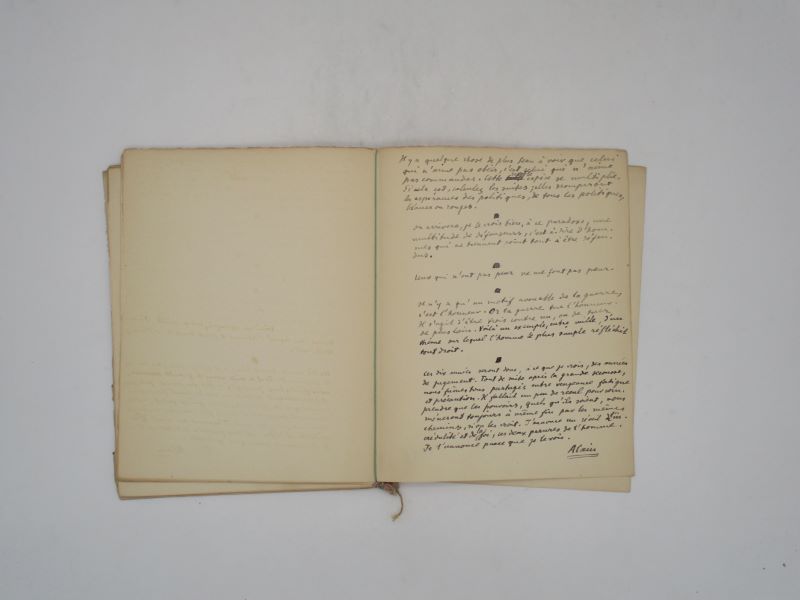 Il y a quelque chose de plus beau à voir que celui
qui n'aime pas obéir, c'est celui qui n'aime
pas commander. Cette espèce se multiplie.
Si cela est, calculez les suites; elles rompraient
les espérances des politiques, de tous les politiques,
blancs ou rouges.
On arrivera, je le crois bien, à ce paradoxe, une
multitude de défenseurs, c'est-à-dire d'hom-
mes qui ne tiennent point tant à être défen-
dus.
Ceux qui n'ont pas peur ne me font pas peur.
Il n'y a qu'un motif avouable de la guerre;
c'est l'honneur. Or la guerre tue l'honneur.
Il s'agit d'être trois contre un, ou de tuer
de plus loin. Voilà un exemple, entre mille, d'un
thème sur lequel l'homme le plus simple réfléchit
tout droit.
Ces dix années seront donc, à ce que je crois, des années
de jugement. Tout de suite après la grande secousse,
nous fûmes tous partagés entre vengeance, fatigue
et précaution. Il fallait un peu de recul pour com-
prendre que les pouvoirs, quels qu'ils soient, nous
mèneront toujours à même fin par les mêmes
chemins, si on les croit. J'annonce un réveil
crédulité et de foi, ces deux parures de l'homme.
Je l'annonce parce que je le vois.
Alain